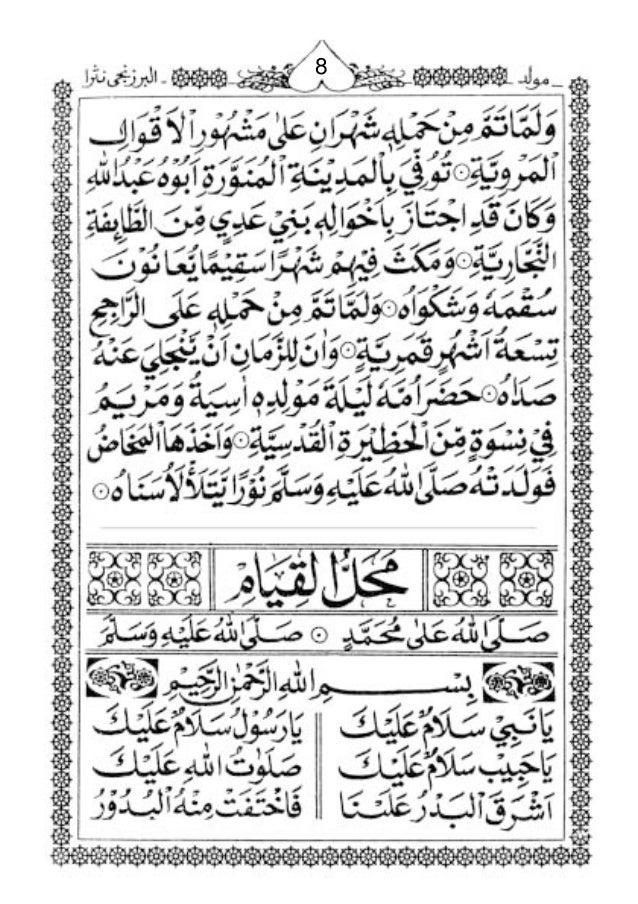 مولد 8 البرزنجي نثرا
وَلَمَّا تَمَّ مِنْ حَمْلِهٖ شَهْرَانِ عَلٰى مَشْهُوْرِ الْاَقْوَالِ
الْمَرْوِيَّةِ۞ تُوُفِّيَ بِالْمَدِيْنَةِ الْمُنَوَّرَةِ اَبُوْهُ عَبْدُاللهِ
وَكَانَ قَدِ اجْتَازَ بِاَخْوَالِهٖ بَنِيْ عَدِيٍ مِّنَ الطَّاِيفَةِ
النَّجَّارِيَّةِ۞ وَمَكَثَ فِيْهِمْ شَهْرًا سَقِيْمًا يُّعَانُوْنَ
سُقْمَهٗ وَشَكْوَاهُ۞ وَلَمَّا تَمَّ مِنْ حَمْلِهٖ عَلَى الرَّاجِحِ
تِسْعَةُ اَشْهُرٍ قَمَرِيَّةٍ۞ وَاٰنَ لِلزَّمَانِ اَنْ يَّنْجَلِيَ عَنْهُ
صَدَاهُ۞ حَضَرَ اُمَّهٗ لَيْلَةَ مَوْلِدِهٖ اٰسِيَةُ وَمَرْيَمُ
فِيْ نِسْوَةٍ مِّنَ الْحَظِيْرَةِ الْقُدْسِيَّةِ۞ وَاَخَذَهَا الْمَخَاضُ
فَوَلَدَتْهُ صَلَّى اللهُ عَلَيْهِ وَسَلَّمَ نُوْرًا يَّتَلَأْلَأُ سَنَاهُ۞
مَحَلُّ الْقِيَامْ
صَلَّى اللهُ عَلٰى مُحَمَّدٍ ۞ صَلَّى اللهُ عَلَيْهِ وَسَلَّمَ
بِسْمِ اللهِ الرَّحْمٰنِ الرَّحِيْمِ
يَا نَبِيْ سَلَامٌ عَلَيْكَ يَا رَسُوْلُ سَلَامٌ عَلَيْكَ
يَا حَبِيْبْ سَلَامٌ عَلَيْكَ صَلَوٰتُ اللهِ عَلَيْكَ
اَشْرَقَ الْبَدْرُ عَلَيْنَا فَاخْتَفَتْ مِنْهُ الْبُدُوْرُ